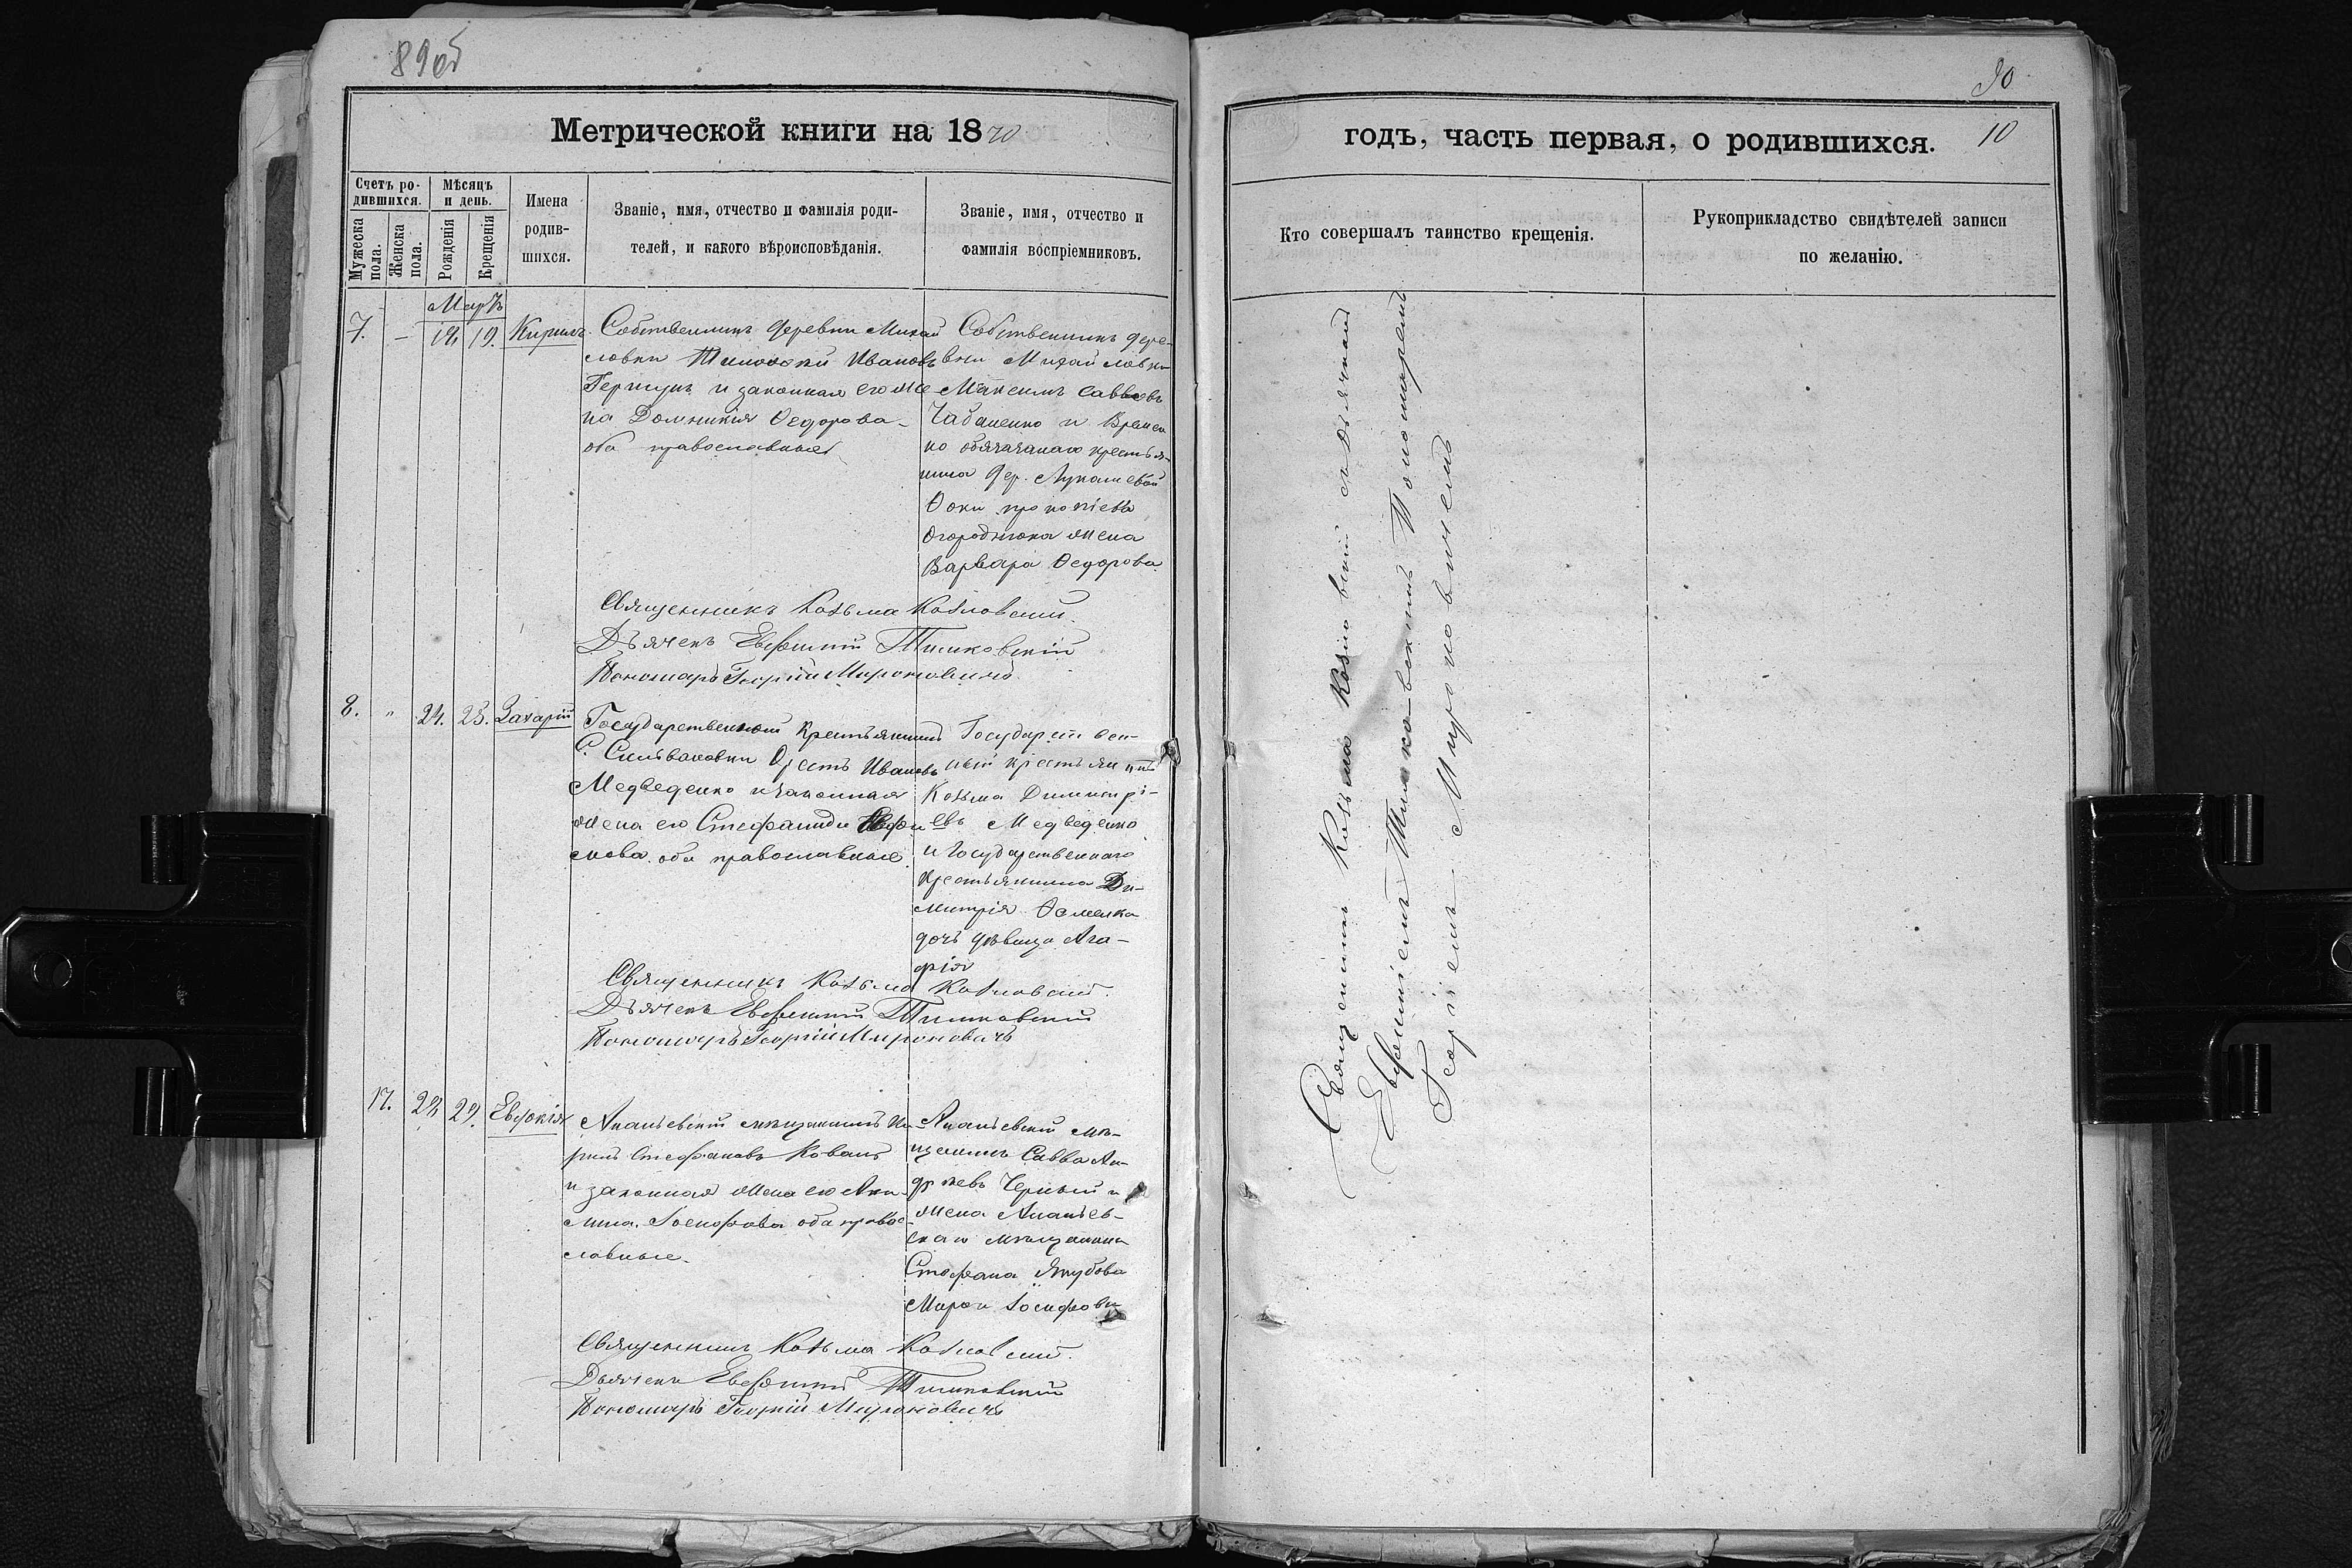 89об
Метрической книги на 1870
Счетъ ро-
дившихся.
Мѣсяцъ
и день.
Мужеска
пола.
Женска
пола.
Рожденія
Крещенія
Имена
родив-
шихся.
Званіе, имя, отчество и фамилія роди-
телей, и какого вѣроисповѣданія.
Званіе, имя, отчество и
фамилія воспріемниковъ.
Мартъ
7. – 19.
Кирилъ
Собственникъ деревни Михай
ловки Тимофей Ивановъ
и законная его же
на Домникія Ѳедорова
оба православные
Собственникъ дере-
вни Михайловки
Максимъ Саввовъ
Чабаненко и Времен
но обязаннаго крестья-
нина дер.
Ѳоки прокопіева
Огородника жена
Варвара Ѳедорова
Священникъ Козьма Козловскій.
Дьячекъ Евфимій Тимковскій
Пономарь Георгій Мироновичъ
8. " 24. 25. Захарій
Государственной крестьянинъ
С. Сильвановки Орестъ Ивановъ
Медведенко и законная
жена его Стефанида
оба православные
Государствен-
ный крестьянинъ
Козьма Димитрі-
евъ Медведенко
и Государственнаго
крестьянина Ди-
митрія
дочь дѣвица Ага-
фія
Священникъ Козьма Козловскій.
Дьячекъ Евфимій Тимковскій
Пономарь Георгій Мироновичъ
17. 28 29. Евдокія
Ананьевскій мѣщанинъ Ки-
рилъ Стефановъ Коваль
и законная жена его Аки-
лина Іосифова оба право-
славные.
Ананьевскій мѣ-
щанинъ Савва Ан-
дреевъ Черный и
жена Ананьев-
скаго мѣщанина
Стефана Якубова
Марѳа Іосифова
Священникъ Козьма Козловскій.
Дьячекъ Евфимій Тимковскій
Пономарь Георгій Мироновичъ
90
годъ, часть первая, о родившихся.
10
Кто совершалъ таинство крещенія.
Рукоприкладство свидѣтелей записи
по желанію.
Священникъ Козьма Козловскій съ дьячкомъ
Евфиміемъ Тимковскимъ и Пономаремъ
Георгіемъ Мироновичемъ